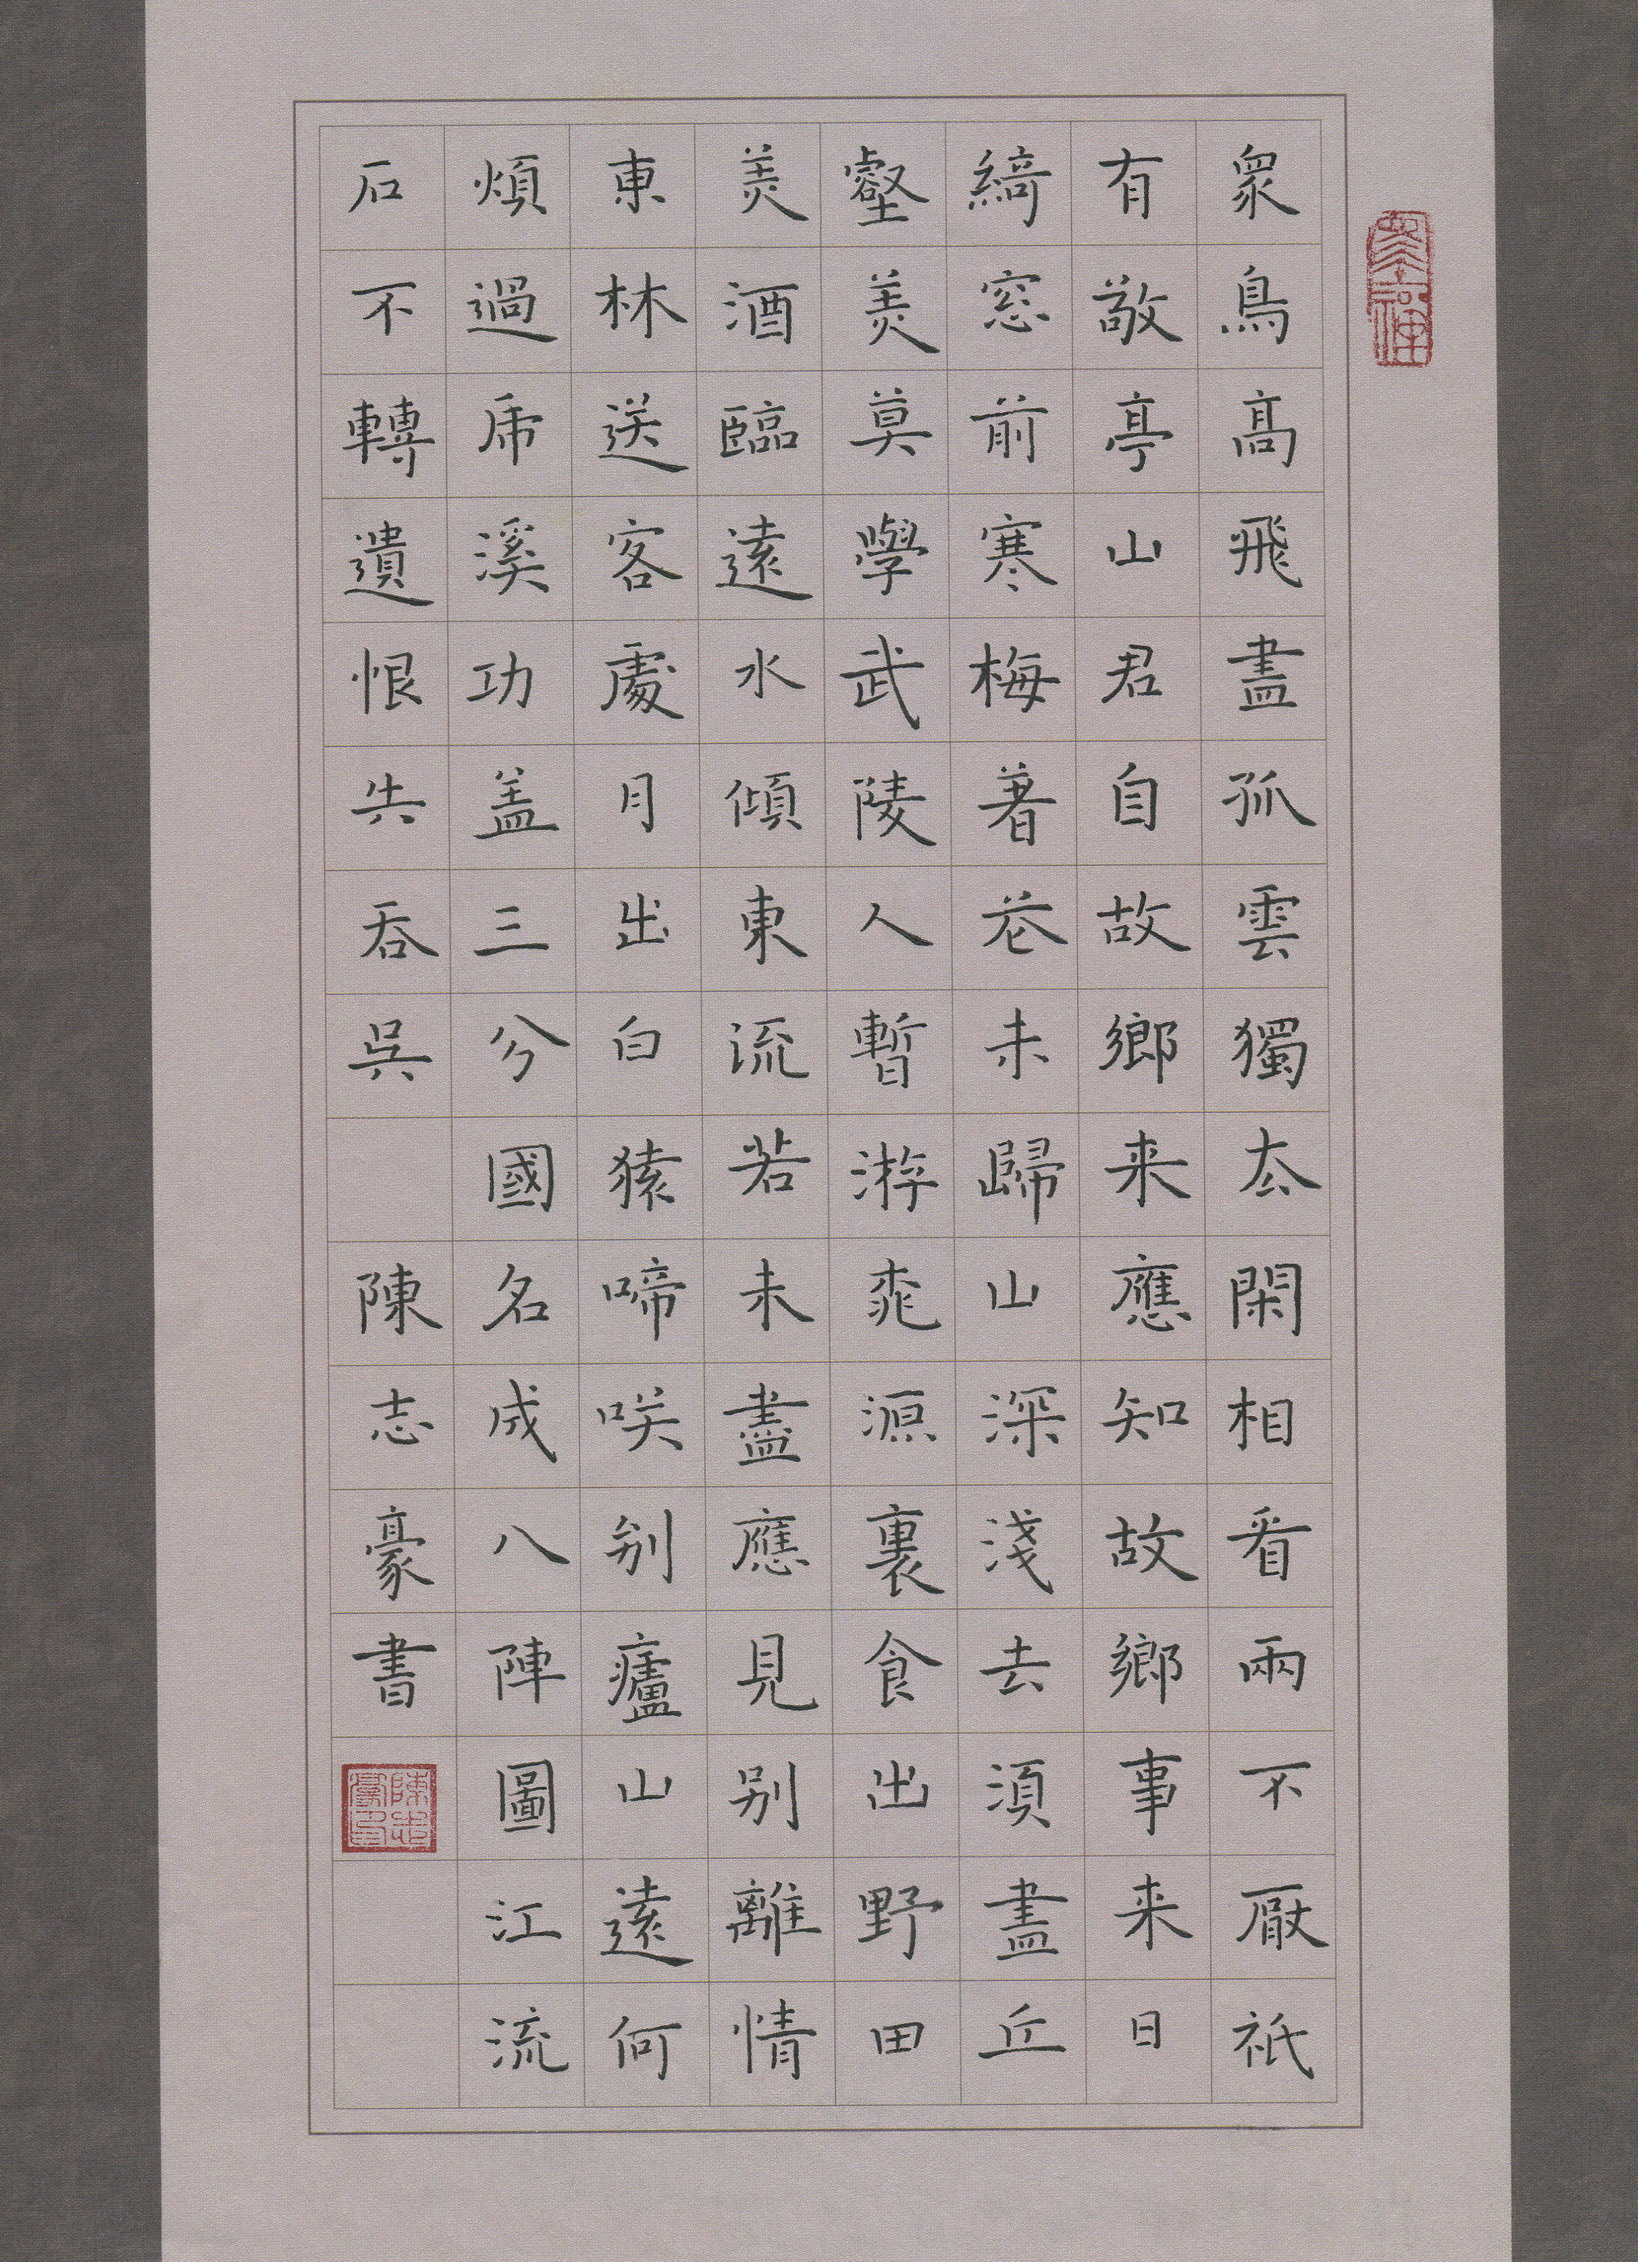 眾鳥高飛盡孤雲獨去閑相看兩不厭祇
有敬亭山君自故鄉来應知故鄉事来日
綺窓前寒梅著花未歸山深淺去須盡丘
壑美莫學武陵人暫游桃源裏食出野田
美酒臨遠水傾東流若未盡應見别離情
東林送客處月出白猿啼咲别廬山遠何
煩過虎溪功盖三分國名成八陣圖江流
石不轉遺恨失吞吳
陳志豪書